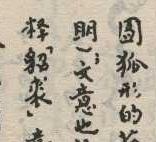 圆狐形的
明)，文意也
释「貂裘」